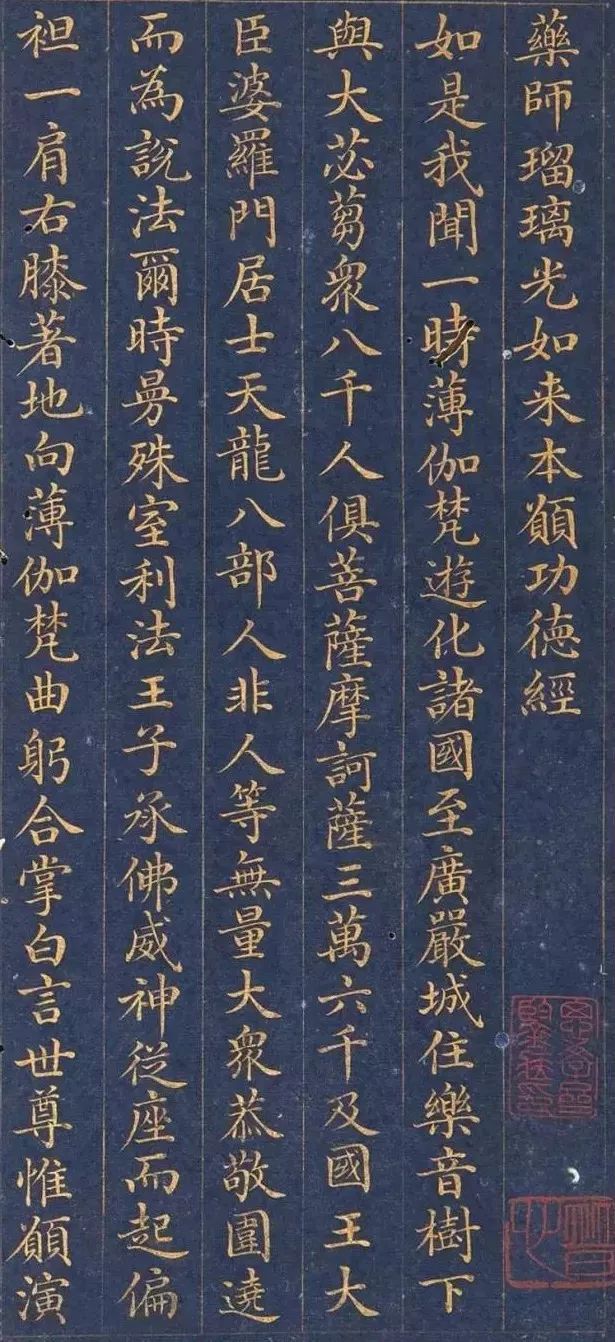 藥師瑠璃光如来本願功徳經
如是我聞一時薄伽梵遊化諸國至廣嚴城住樂音樹下
與大苾芻衆八千人俱菩薩摩訶薩三萬六千及國王大
臣婆羅門居士天龍八部人非人等無量大衆恭敬圍遶
而為説法爾時曼殊室利法王子承佛威神從座而起偏
袒一肩右膝著地向薄伽梵曲躬合掌白言世尊惟願演